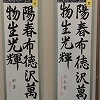 陽春布德沢萬
物生光輝
陽春布德沢萬
物生光輝